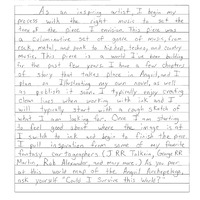 As an inspiring artist, I begin my
process with the right music to set the
tone of the piece I envision. This piece was
a culminative set of genre of music, from
rock, metal, and punk to hip hop, techno, and country
music. This piece is a world I've been building
for the past few years. I have a few chapters
of story that takes place in Angul, and I
plan on illustrating my own novel as well
as publish it soon. I typically enjoy creating
clean lines when working with ink and I
will typically start with a rough sketch of
what I am looking for. Once I am starting
to feel good about where the image is at
I switch to ink and begin to finish the piece.
I pull inspiration from some of my favorite
fantasy cartographers (J RR Tolkien, George RR
Martin, Rob Alexander, and many more.) As you peer
at this world map of the Angul Archipelago,
ask yourself "Could I Survive this World?"